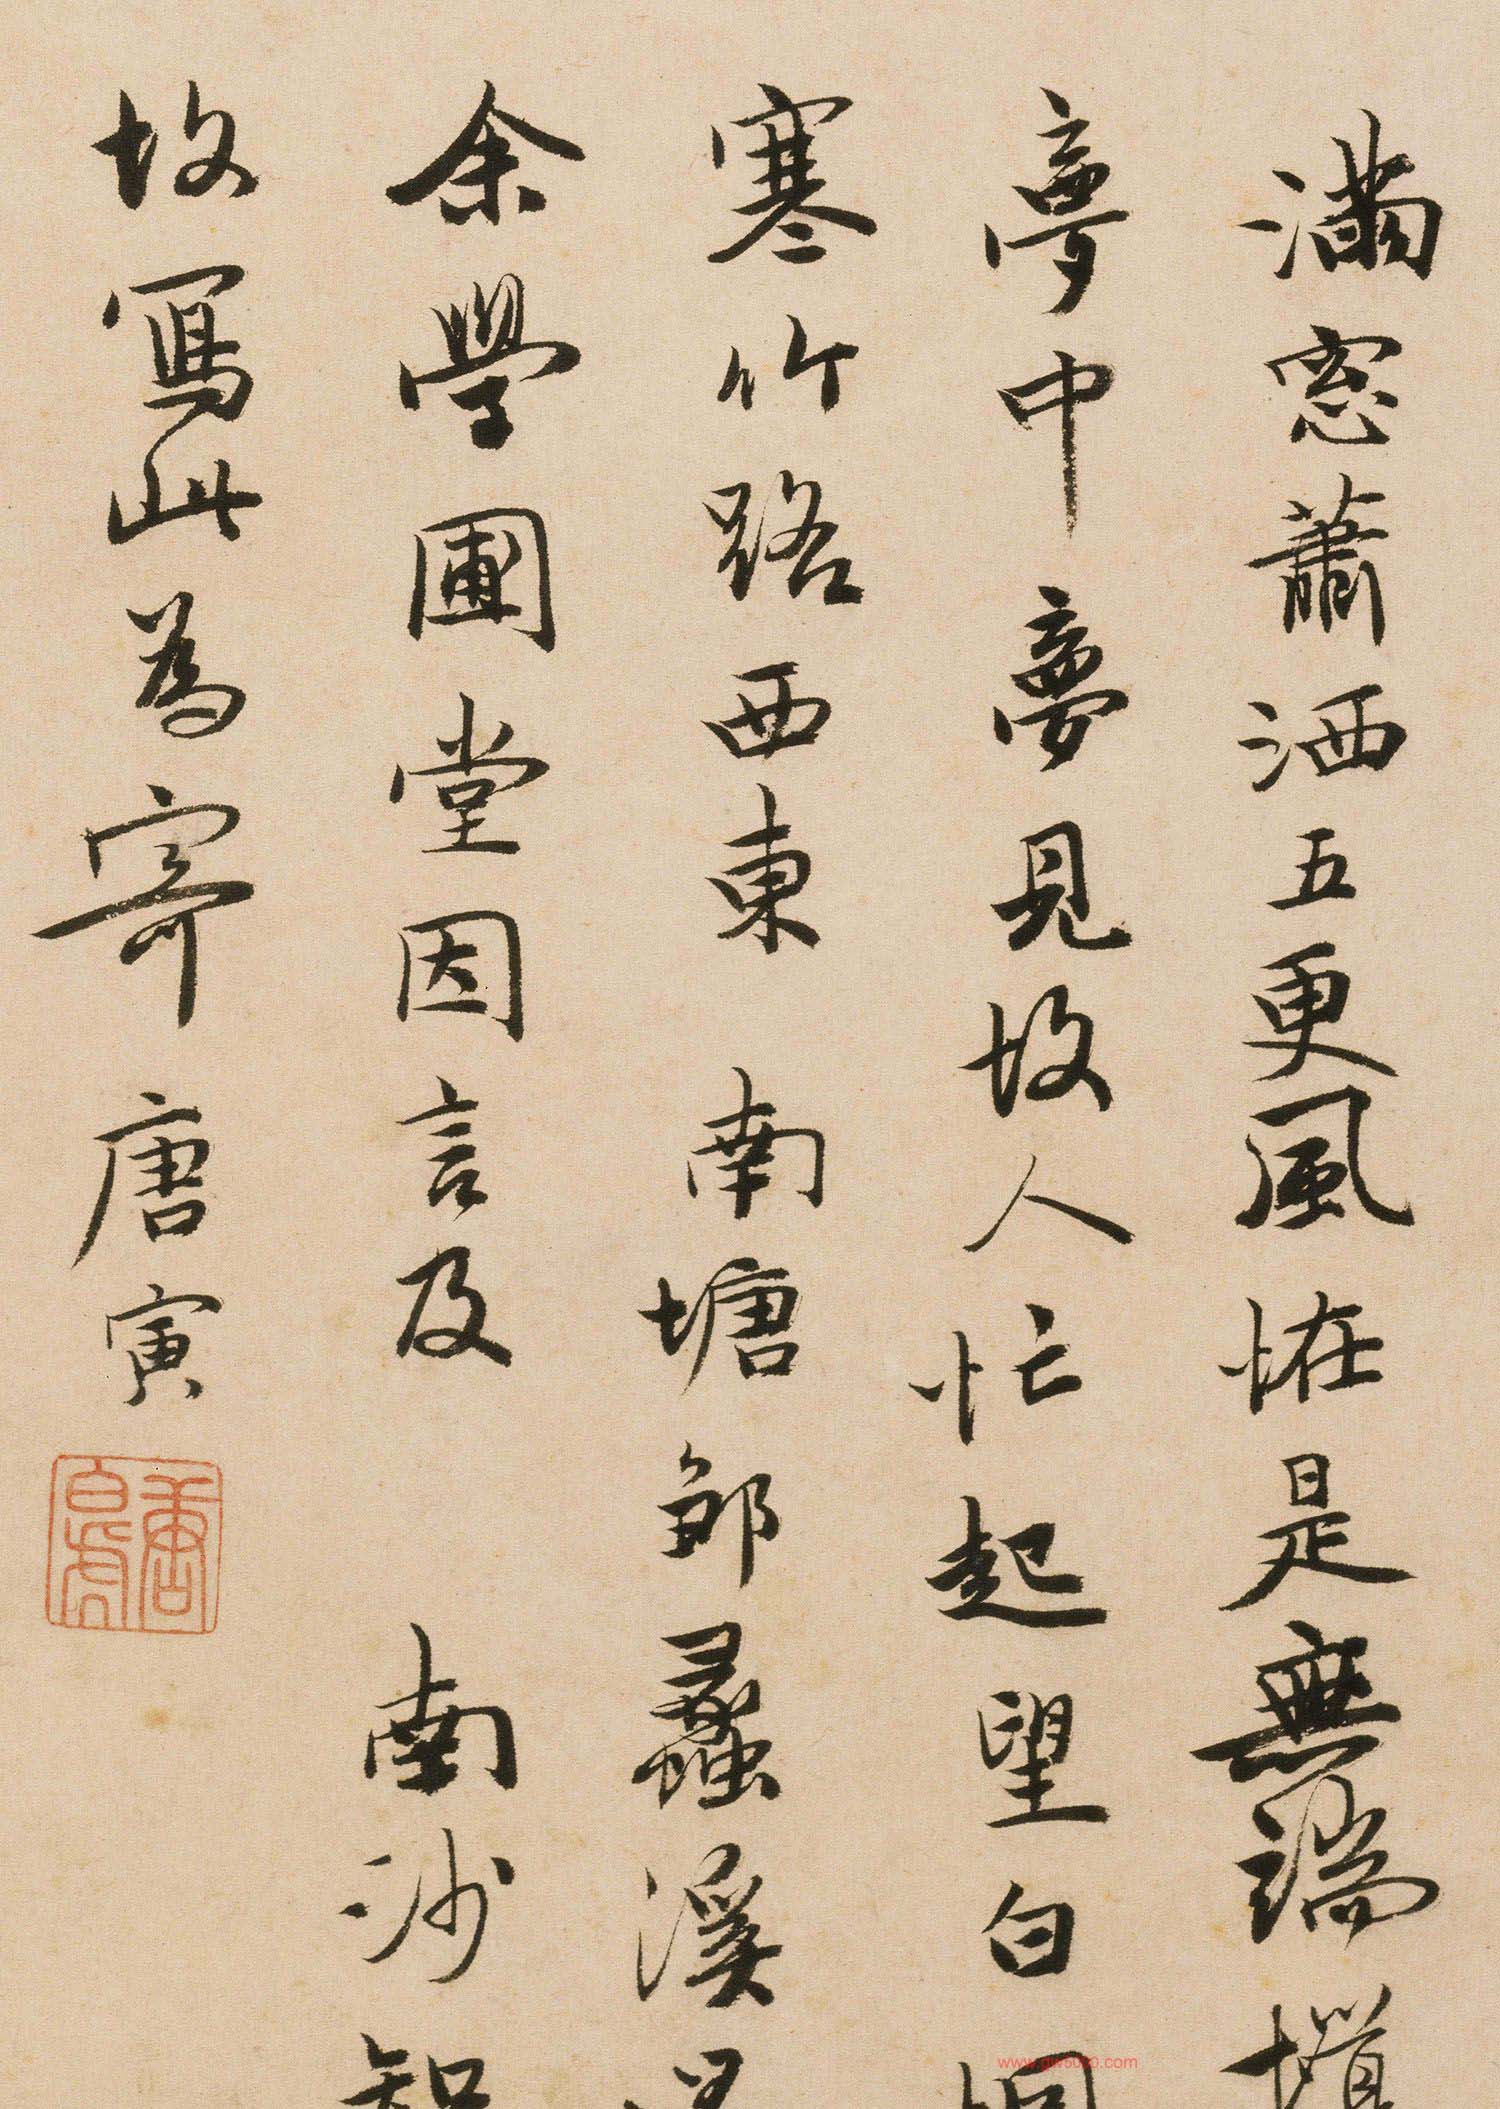 滿窓蕭洒五更風恠是無端
夢中夢見故人忙起望白
寒竹路西東 南塘鄒蠡溪
余學圃堂因言及 南沙
故寫此為寄 唐寅
唐白虎